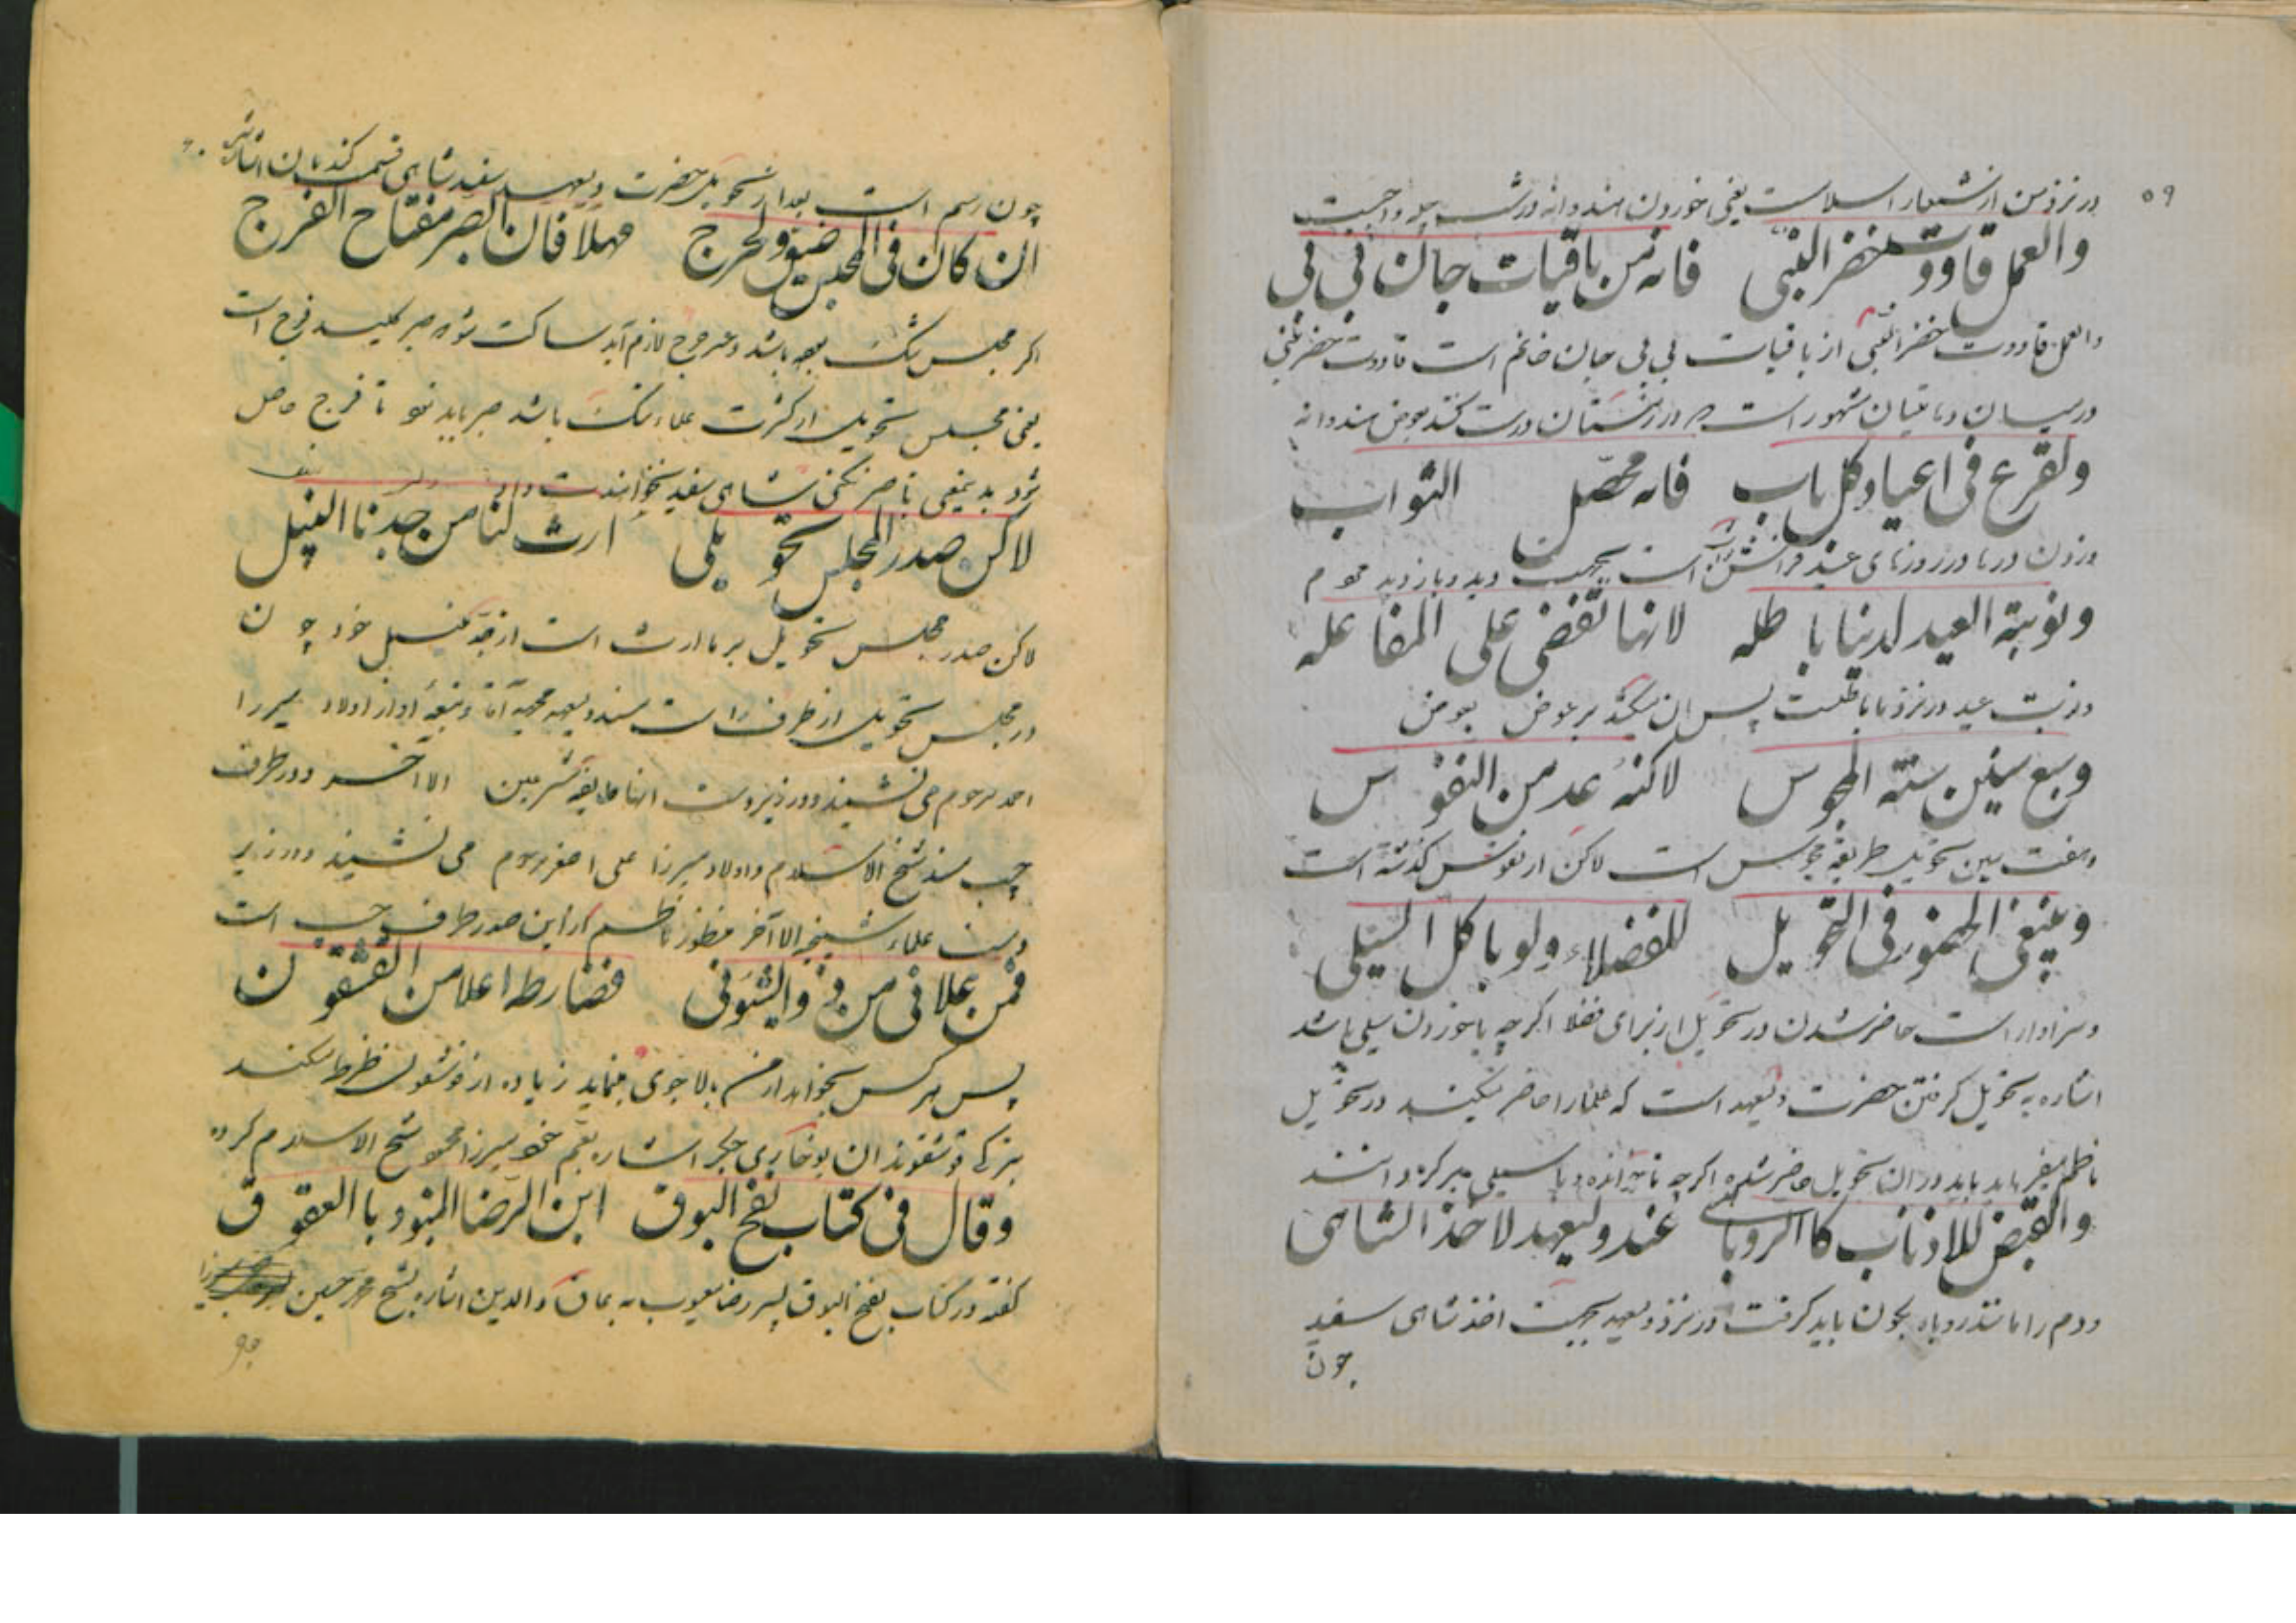 ۵۹
در نزد من از شعار اسلامست یعنی خوردن هندوانه در شب چله واجبست
والعمل قاووت خضر النبی فانه من باقیات جان بی بی
والعمل قاووت خضر النبی از باقیات بی بی جان خانم است قاووت خضر نبی
در میان و باقیان مشهور است در زمستان درست کنند بعوض هندوانه
ولقرع فی اعیاد کل باب فانه محصل الثواب
وزدن درها در روزهای عید است بجهت دید و بازدید مردم
ونوبة العید لدینا باطله لانها تقضی علی المفاعله
ونوبت عید در نزد ما باطلست پس ان میکند بر عوض بعوض
وسبع سین سنة المجوس لاکنه عد من النفوس
وهفت سین تحویل طریقه مجوس است لاکن از نفوس گذشته است
وینبغی الحضور فی التحویل للفضلاء ولو با کل السیلی
وسزاوار است حاضر شدن در تحویل از برای فضلا اگر چه با خوردن سیلی باشد
اشاره به تحویل گرفتن حضرت ولیعهد است که علما را حاضر میکنند در تحویل
ناظم میفرماید باید در ان تحویل حاضر شد اگر چه ناخوانده و با سیلی
والقبض للاذناب کا الروباهی عند ولیعهد لاخذ الشاهی
ودم را مانند روباه بکون باید گرفت در نزد ولیعهد بجهت اخذ شاهی سفید
چون
چون رسم است بعد از تحویل حضرت ولیعهد سفید شاهی قسمت کند بان
ان کان فی المجلس ضیق والحرج مهلا فان الصبر مفتاح الفرج
اکر مجلس تنک بوده باشد وعسر حرج لازم آید ساکت شو صبر کلید فرج است
یعنی مجلس تحویل از کثرت علماء تنک باشد صبر باید نمود تا فرج حاصل
شود بدیمعنی تا صبر نکنی شاهی سفید نخواهند داد
لاکن صدر المجلس تحویلی ارث لنا من جدنا الفیل
لاکن صدر مجلس تحویل بر ما ارث است از جد فیل خود چون
در مجلس تحویل از طرف راست مسند ولیعهد مجتهد آقا وبقیه او از اولاد میرزا
احمد مرحوم می نشیند ودر زیر دست انها طایفه متشرعین الا آخر ودر طرف
چپ مسند شیخ الاسلام واولاد میرزا علی اصغر مرحوم می نشیند ودر زیر
دست علماء شیخیه الا آخر منظور ناظم از این صدر طرف چپ است
فمن علا فی من ذو الشئونی فضارطه اعلا من القشقون
پس هر کس بخواهد از من بالا جوی بنماید زیاده از قوشقون ضرطه میکند
وقال فی کتاب نفخ البوق ابن الرضا المنبود با العقوق
گفته در کتاب نفخ البوق پسر رضا معیوب به عاق والدین اشاره بشیخ محمد حسین